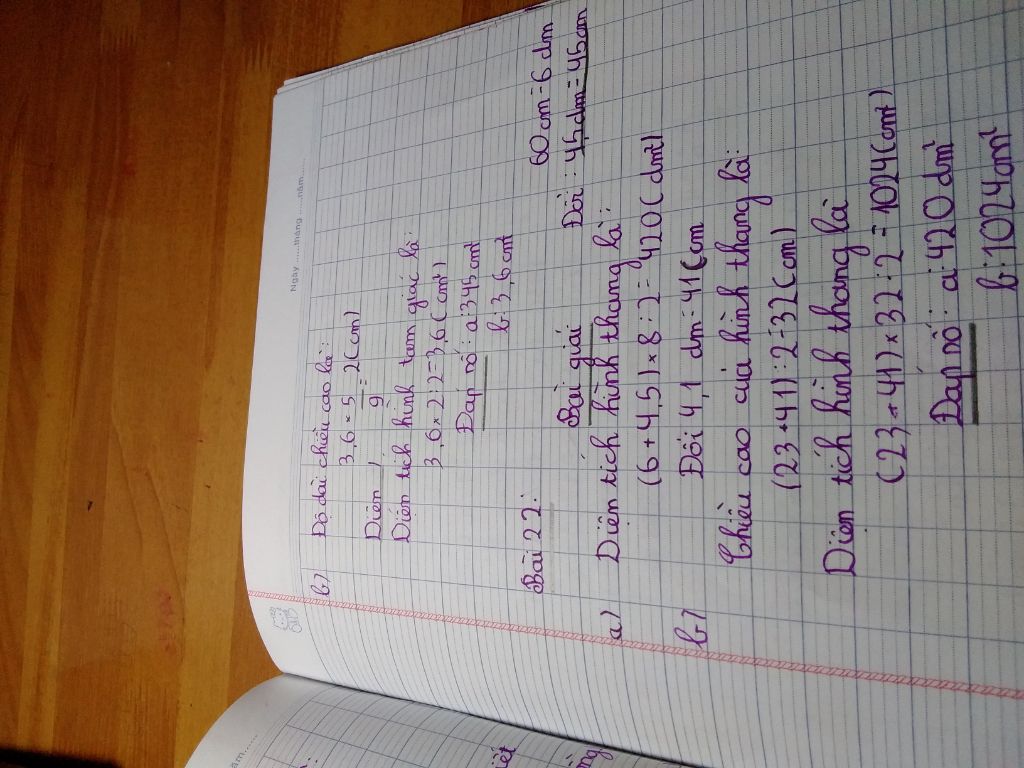 Ngày ......tháng ......năm......
b) Độ dài chiều cao là:
3,6 × 5/9 = 2(cm)
Diện
Diện tích hình tam giác là:
3,6 × 2:2=3,6(cm²)
Đáp số: a:345cm²
b:3,6cm²
Bài 22:
60cm=6dm
Bài giải
Đổi: 45dm=45cm
a) Diện tích hình thang là:
(6+4,5)×8:2=420(dm²)
b) Đổi 4,1 dm=41(cm
Chiều cao của hình thang là:
(23+41):2=32(cm)
Diện tích hình thang là
(23+41)×32:2=1024(cm²)
Đáp số: a:420dm²
b:1024cm²
ăm......
iết